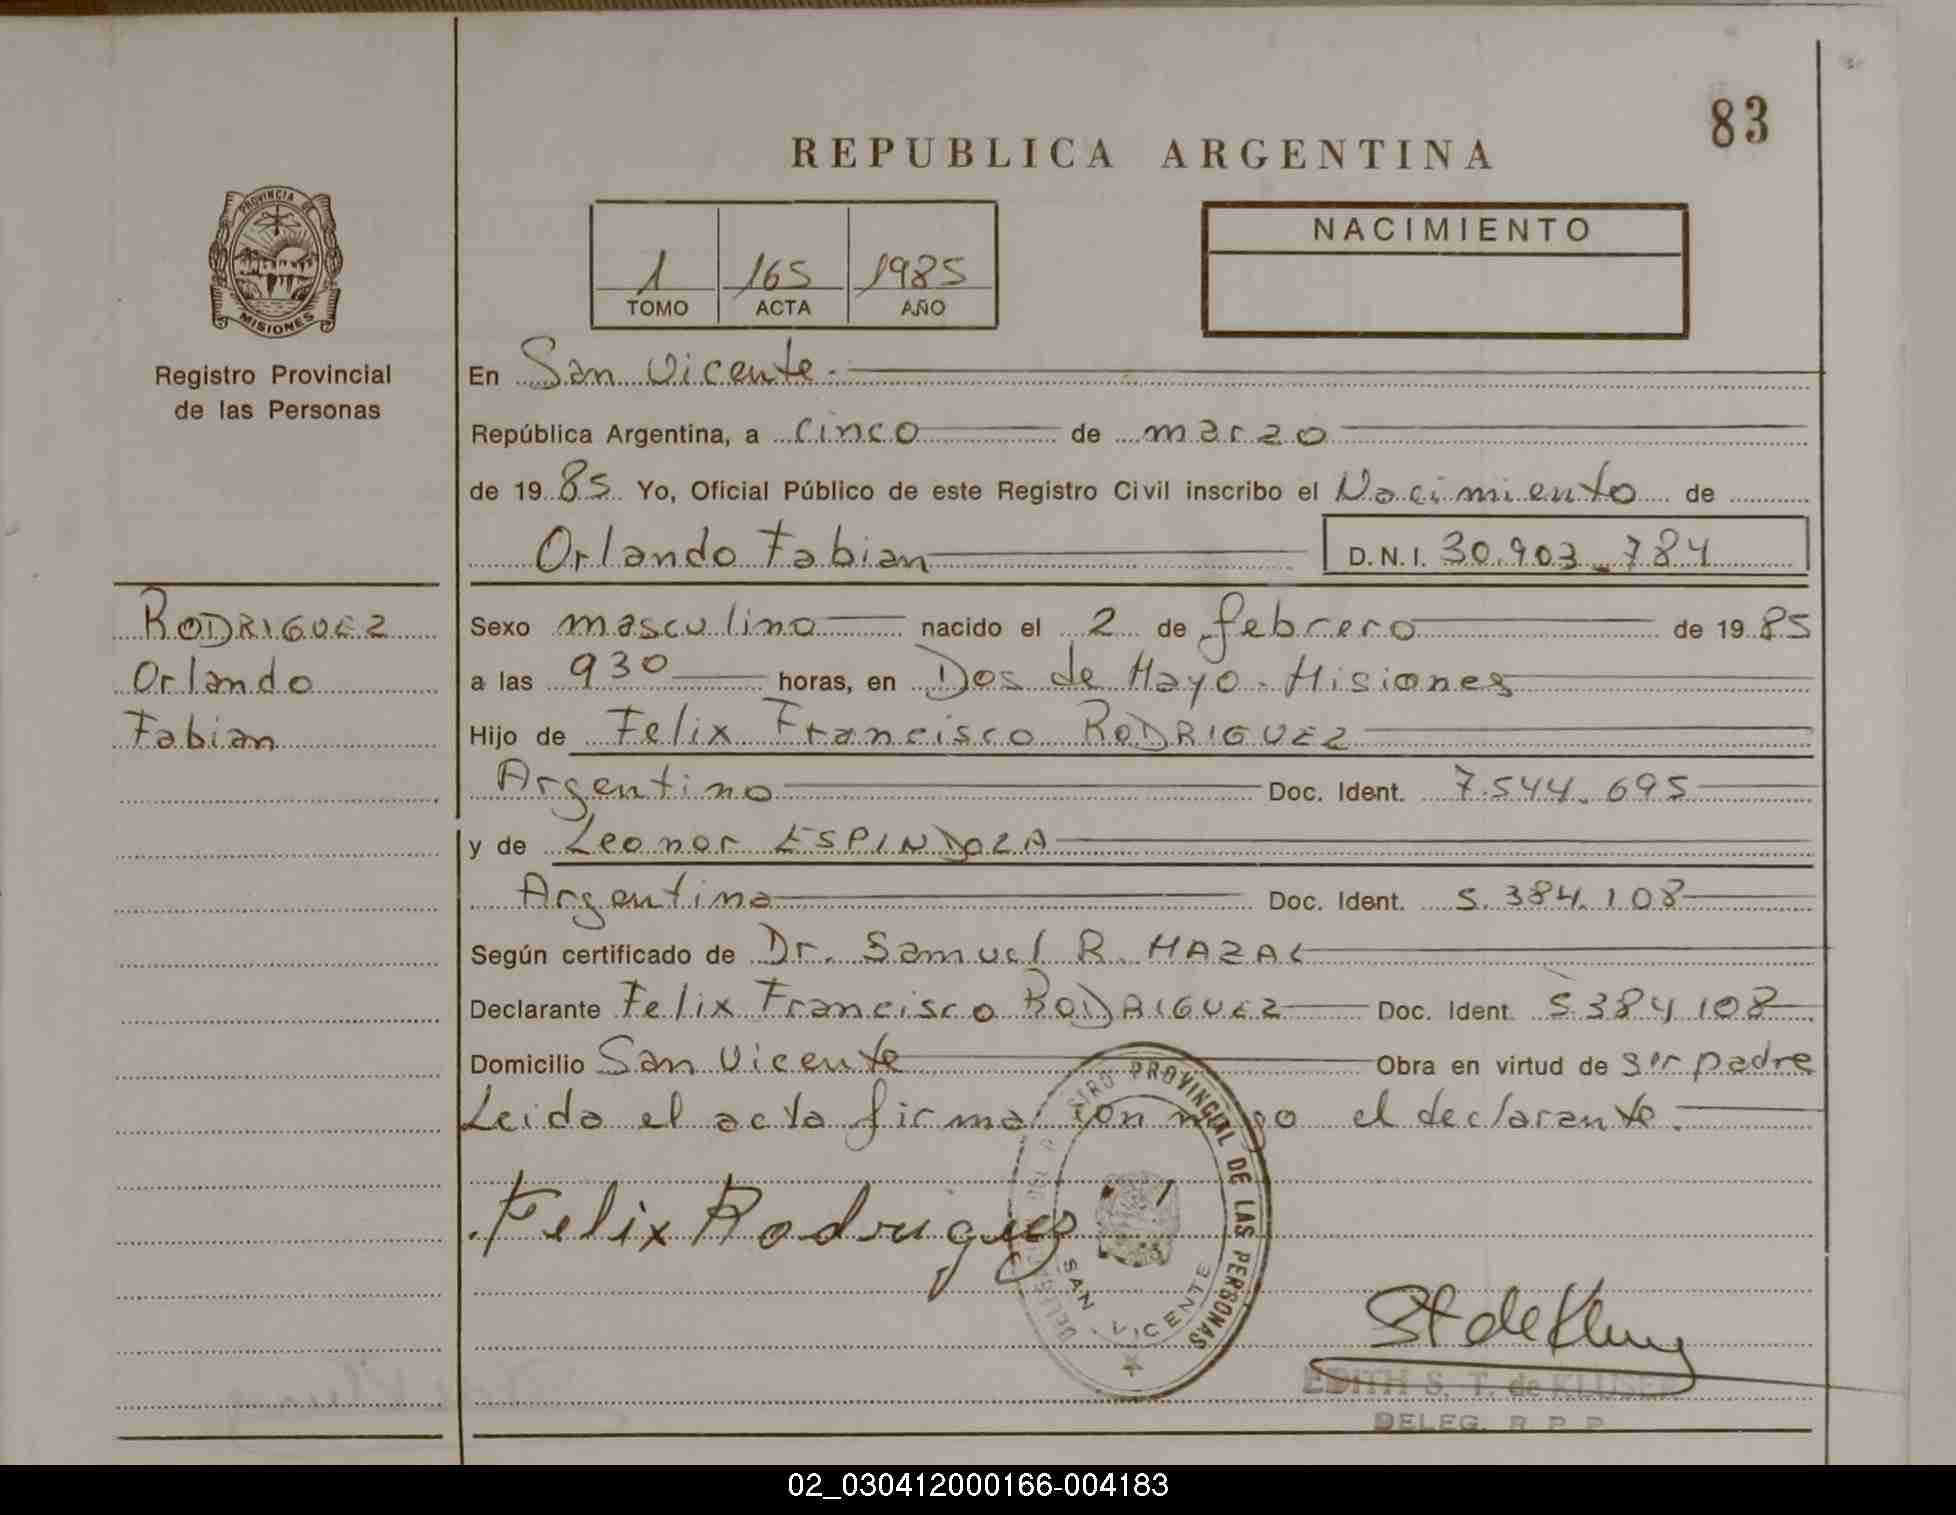 83
REPUBLICA ARGENTINA
PROVINCIA DE
MISIONES
1 165 1985
TOMO ACTA AÑO
NACIMIENTO
Registro Provincial
de las Personas
En San Vicente.
República Argentina, a cinco de marzo
de 1985 Yo, Oficial Público de este Registro Civil inscribo el Nacimiento de
Orlando Fabian D.N.I. 30.903.784
RODRIGUEZ
Orlando
Fabian
Sexo masculino nacido el 2 de febrero de 1985
a las 930 horas, en Dos de Mayo - Misiones
Hijo de Felix Francisco RODRIGUEZ
Argentino Doc. Ident. 7.544.695
y de Leonor ESPINDOLA
Argentina Doc. Ident. 5.384.108
Según certificado de Dr. Samuel R. MAZAL
Declarante Felix Francisco RODRIGUEZ Doc. Ident. 5384108
Domicilio San Vicente Obra en virtud de ser padre
Leida el acta firma con migo el declarante.
Felix Rodriguez
PROVINCIAL DE LAS PERSONAS
SAN VICENTE
St de Kluse
EDITH S. T. de KLUSER
DELEG. R P P
02_030412000166-004183